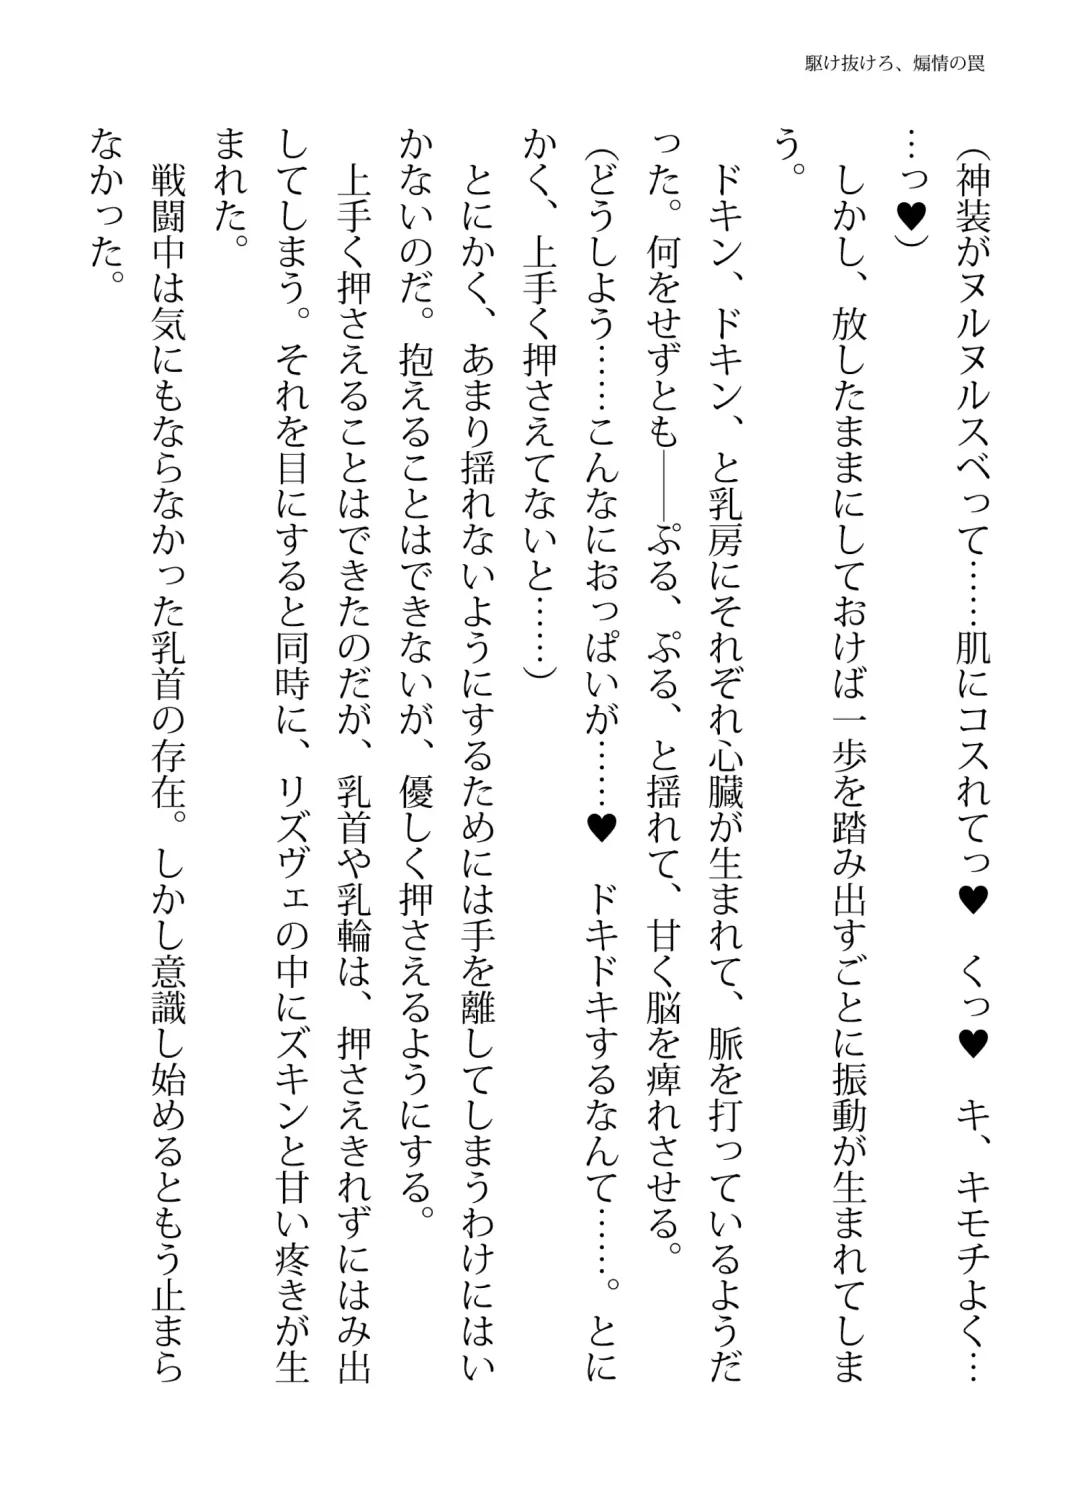 駆け抜けろ、煽情の罠
（神装がヌルヌルスベって……肌にコスれてっ♥　くっ♥　キ、キモチよく…
…っ♥）
　しかし、放したままにしておけば一歩を踏み出すごとに振動が生まれてしま
う。
　ドキン、ドキン、と乳房にそれぞれ心臓が生まれて、脈を打っているようだ
った。何をせずとも――ぷる、ぷる、と揺れて、甘く脳を痺れさせる。
（どうしよう……こんなにおっぱいが……♥　ドキドキするなんて……。とに
かく、上手く押さえてないと……）
　とにかく、あまり揺れないようにするためには手を離してしまうわけにはい
かないのだ。抱えることはできないが、優しく押さえるようにする。
　上手く押さえることはできたのだが、乳首や乳輪は、押さえきれずにはみ出
してしまう。それを目にすると同時に、リズヴェの中にズキンと甘い疼きが生
まれた。
　戦闘中は気にもならなかった乳首の存在。しかし意識し始めるともう止まら
なかった。